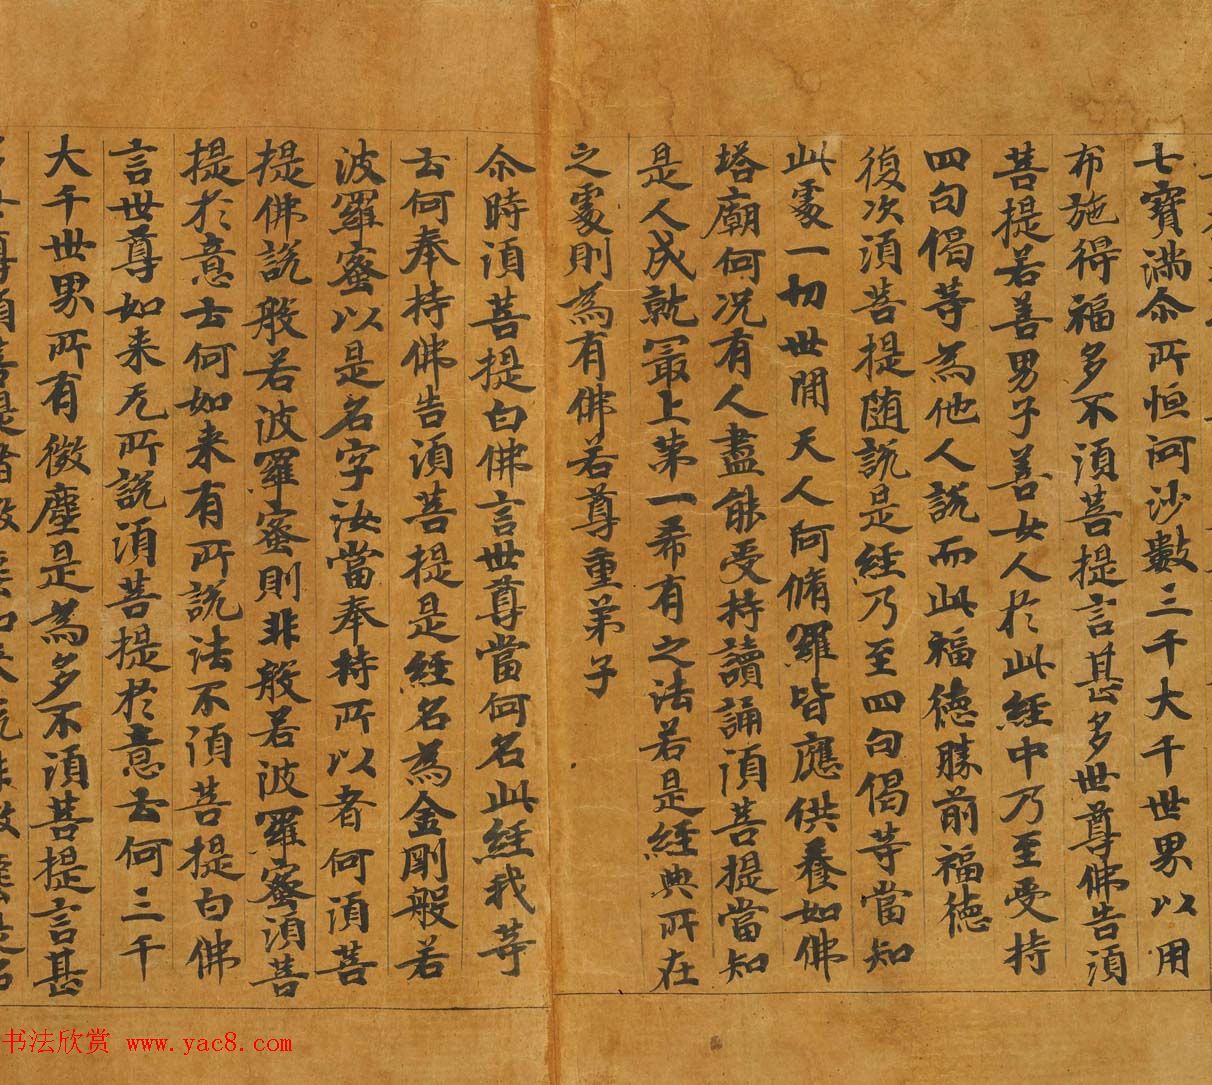 七寶滿尒所恒河沙數三千大千世界以用
布施得福多不須菩提言甚多世尊佛告須
菩提若善男子善女人於此經中乃至受持
四句偈等為他人說而此福德勝前福德
復次須菩提随說是經乃至四句偈等當知
此處一切世間天人阿脩羅皆應供養如佛
塔廟何況有人盡能受持讀誦須菩提當知
是人成就㝡上第一希有之法若是經典所在
之處則為有佛若尊重弟子
尒時須菩提白佛言世尊當何名此經我等
云何奉持佛告須菩提是經名為金剛般若
波羅蜜以是名字汝當奉持所以者何須菩
提佛說般若波羅蜜則非般若波羅蜜須菩
提於意云何如来有所說法不須菩提白佛
言世尊如来无所說須菩提於意云何三千
大千世界所有微塵是為多不須菩提言甚
书法欣赏 www.yac8.com